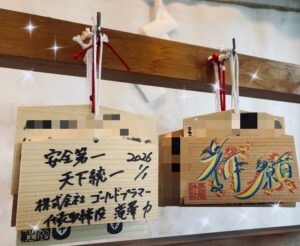 安全第一 2026
天下統一 1/1
株式会社 ゴールドプラマー
代表取締役 滝澤 力
祈願